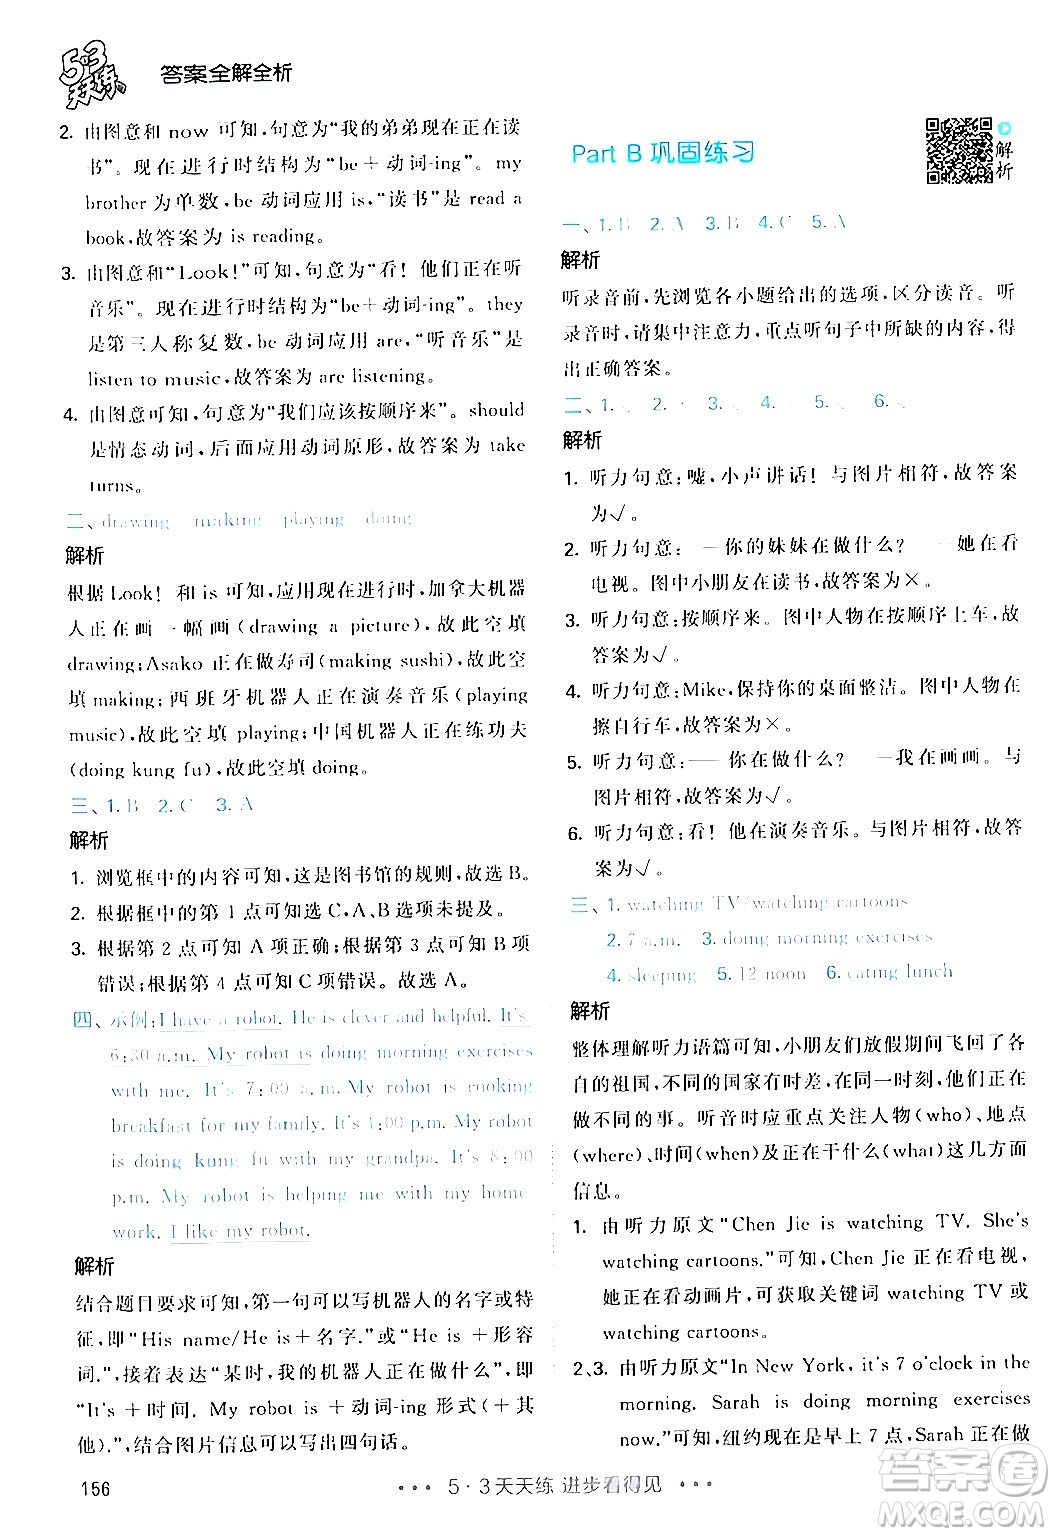 5·3
天天练
答案全解全析
2. 由图意和 now 可知,句意为“我的弟弟现在正在读
书”。现在进行时结构为“be＋动词-ing”。my
brother 为单数, be 动词应用 is,“读书”是 read a
book,故答案为 is reading。
3. 由图意和“Look!”可知,句意为“看! 他们正在听
音乐”。现在进行时结构为“be＋动词-ing”。they
是第三人称复数,be 动词应用 are,“听音乐”是
listen to music,故答案为 are listening。
4. 由图意可知,句意为“我们应该按顺序来”。should
是情态动词,后面应用动词原形,故答案为 take
turns。
二、drawing making playing doing
解析
根据 Look! 和 is 可知,应用现在进行时,加拿大机器
人正在画一幅画(drawing a picture),故此空填
drawing;Asako 正在做寿司(making sushi),故此空
填 making;西班牙机器人正在演奏音乐(playing
music),故此空填 playing;中国机器人正在练功夫
(doing kung fu),故此空填 doing。
三、1. B 2. C 3. A
解析
1. 浏览框中的内容可知,这是图书馆的规则,故选 B。
2. 根据框中的第 1 点可知选 C,A、B 选项未提及。
3. 根据第 2 点可知 A 项正确;根据第 3 点可知 B 项
错误;根据第 4 点可知 C 项错误。故选 A。
四、示例:I have a robot. He is clever and helpful. It's
6:30 a.m. My robot is doing morning exercises
with me. It's 7:00 a.m. My robot is cooking
breakfast for my family. It's 4:00 p.m. My robot
is doing kung fu with my grandpa. It's 8:00
p.m. My robot is helping me with my home
work. I like my robot.
解析
结合题目要求可知,第一句可以写机器人的名字或特
征,即“His name/He is＋名字.”或“He is ＋形容
词.”,接着表达“某时,我的机器人正在做什么”,即
“It's ＋时间. My robot is ＋动词-ing 形式(＋其
他).”,结合图片信息可以写出四句话。
156
Part B 巩固练习
解析
一、1. B 2. A 3. B 4. C 5. A
解析
听录音前,先浏览各小题给出的选项,区分读音。听
录音时,请集中注意力,重点听句子中所缺的内容,得
出正确答案。
二、1. 2. 3. 4. 5. 6.
解析
1. 听力句意:嘘,小声讲话! 与图片相符,故答案
为√。
2. 听力句意: —你的妹妹在做什么? —她在看
电视。图中小朋友在读书,故答案为×。
3. 听力句意:按顺序来。图中人物在按顺序上车,故
答案为√。
4. 听力句意:Mike,保持你的桌面整洁。图中人物在
擦自行车,故答案为×。
5. 听力句意:—你在做什么? —我在画画。与
图片相符,故答案为√。
6. 听力句意:看! 他在演奏音乐。与图片相符,故答
案为√。
三、1. watching TV/watching cartoons
2. 7 a.m. 3. doing morning exercises
4. sleeping 5. 12 noon 6. eating lunch
解析
整体理解听力语篇可知,小朋友们放假期间飞回了各
自的祖国,不同的国家有时差,在同一时刻,他们正在
做不同的事。听音时应重点关注人物(who)、地点
(where)、时间(when)及正在做什么(what)这几方面
信息。
1. 由听力原文“Chen Jie is watching TV. She's
watching cartoons.”可知,Chen Jie 正在看电视,
她正在看动画片,可获取关键词 watching TV 或
watching cartoons。
2、3. 由听力原文“In New York, it's 7 o'clock in the
morning. Sarah is doing morning exercises
now.”可知,纽约现在是早上 7 点,Sarah 正在做
5·3天天练 进步看得见
答案圈
MXQE.COM